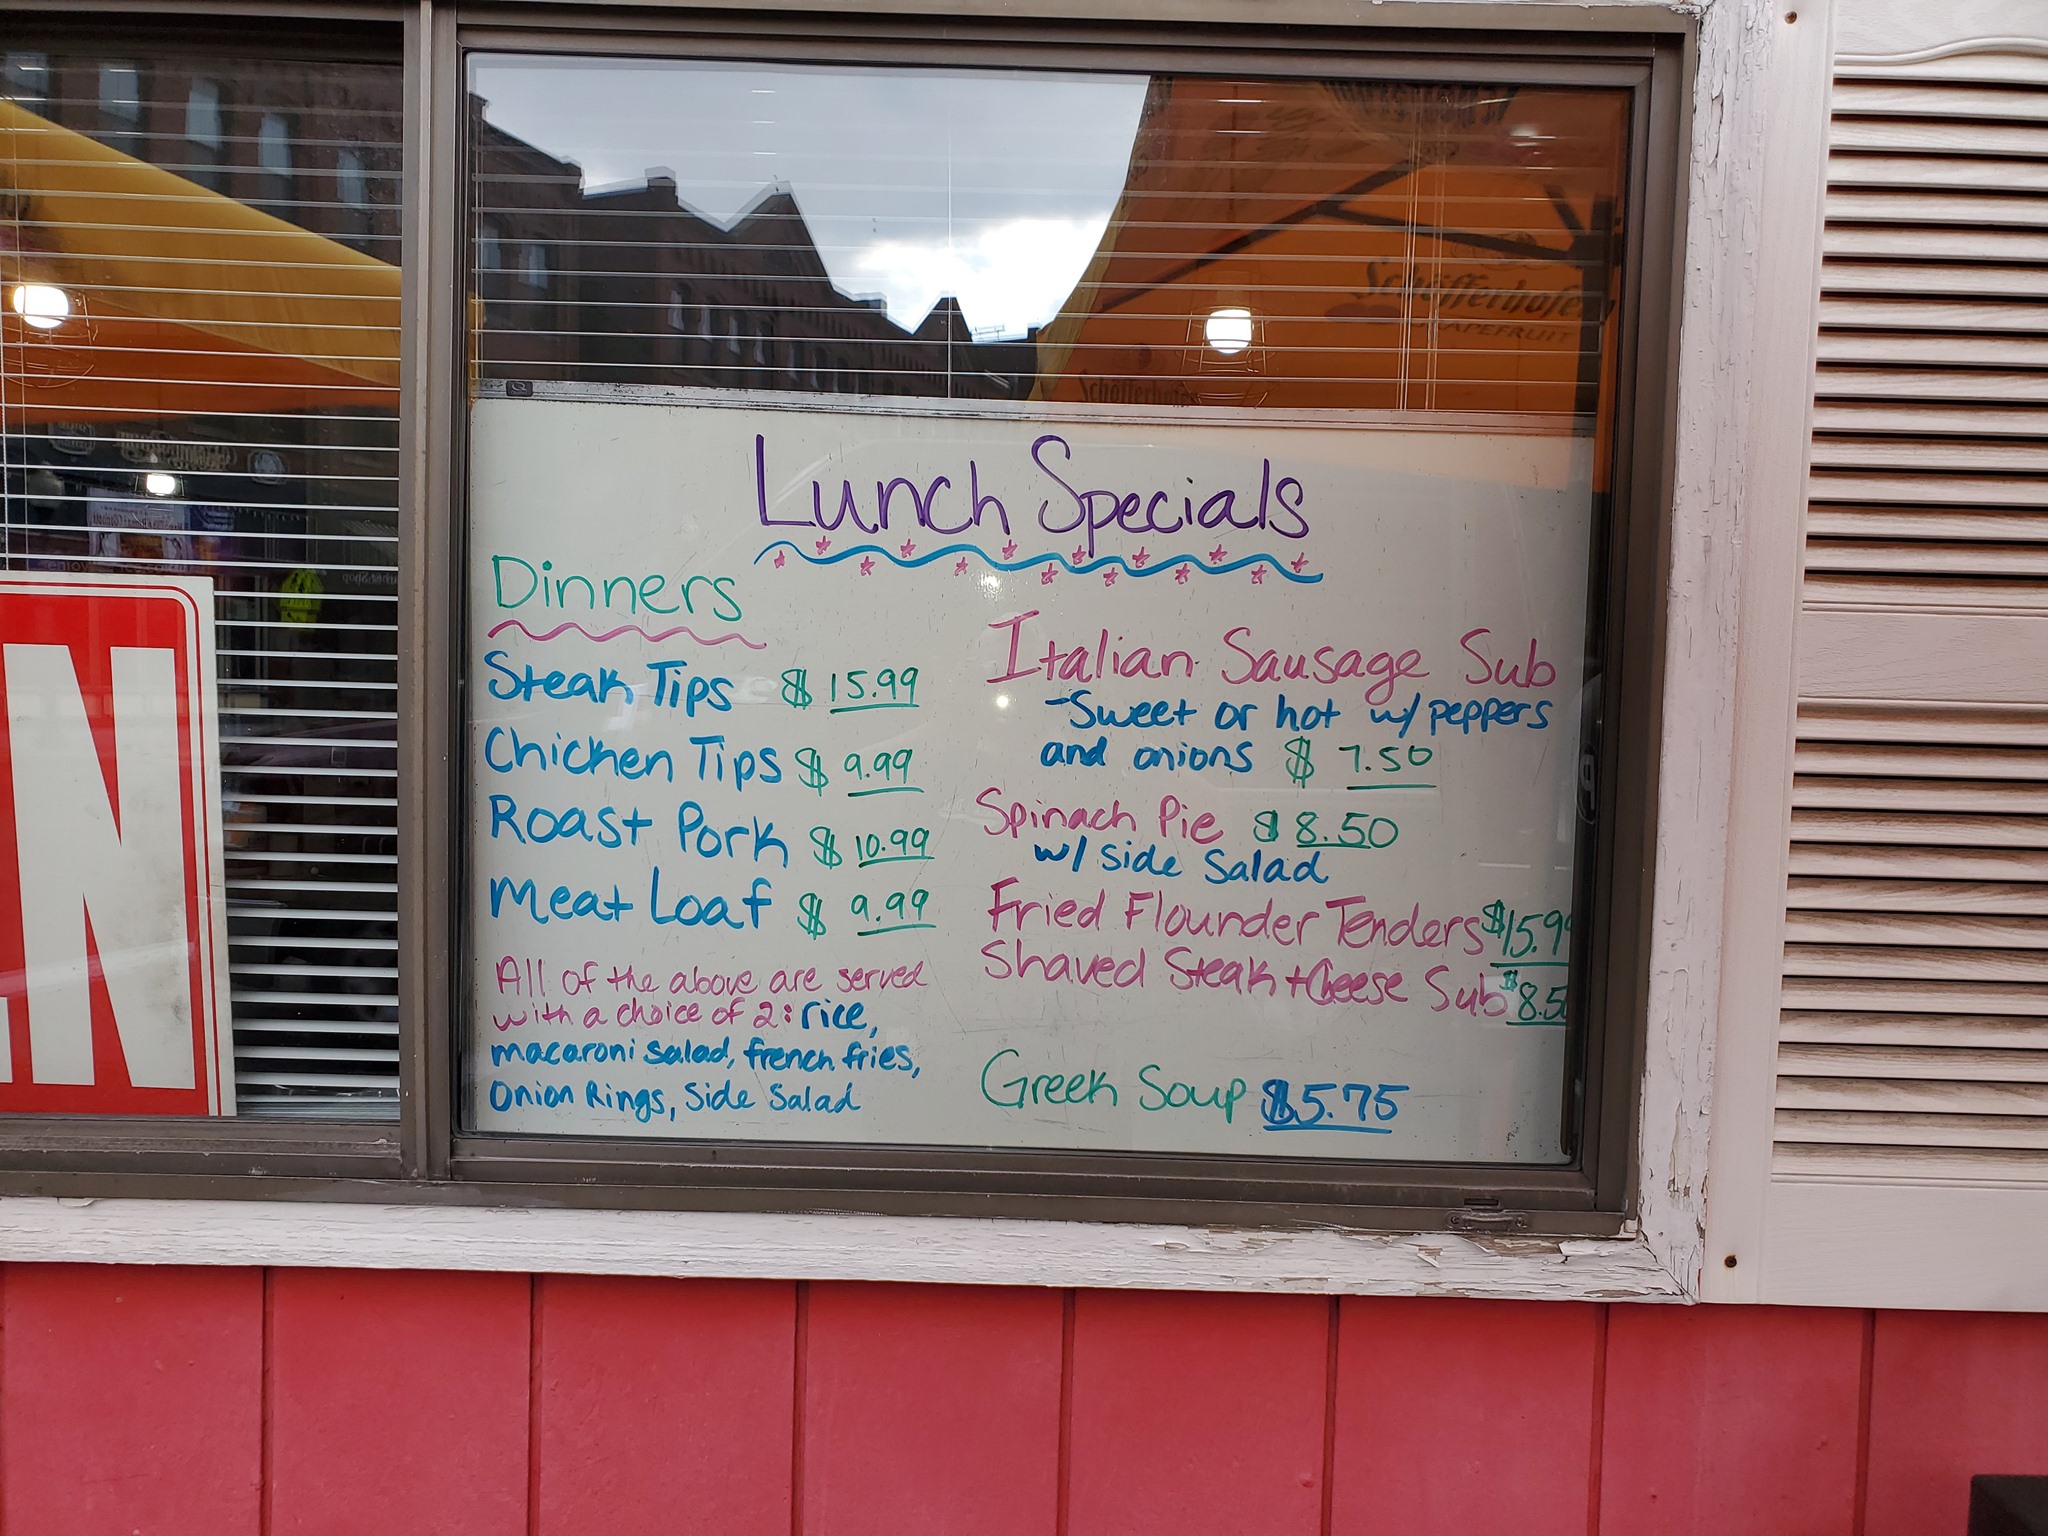 Lunch Specials
Dinners
Steak Tips $ 15.99
Chicken Tips $ 9.99
Roast Pork $ 10.99
Meat Loaf $ 9.99
All of the above are served
with a choice of 2: rice,
macaroni salad, french fries,
Onion Rings, Side Salad
Italian Sausage Sub
-Sweet or hot w/ peppers
and onions $ 7.50
Spinach Pie $ 8.50
w/ side Salad
Fried Flounder Tenders $15.99
Shaved Steak + Cheese Sub $8.50
Greek Soup $5.75
Schöfferhofer
GRAPEFRUIT
Schöfferhofer
N